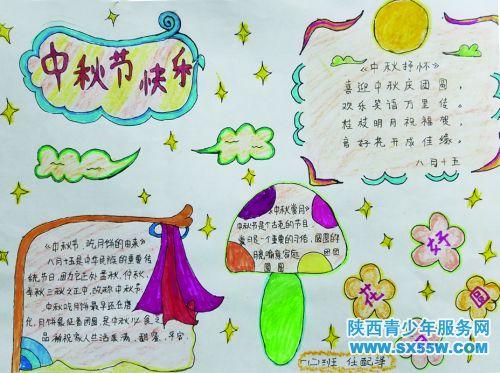 中秋节快乐
《中秋抒怀》
喜迎中秋庆团圆，
欢乐笑语万里传。
桂枝明月祝福贺，
良好花开成佳缘。
八月十五
《中秋节，吃月饼的由来》
八月十五是中华民族的重要传
统节日，因为它正处孟秋、仲秋、
季秋三秋之正中，故称中秋节。
中秋吃月饼最早还在唐
代，月饼象征着团圆，是中秋必食之
品，祝祝家人生活美满、甜蜜、平安。
《中秋赏月》
中秋节是个古老的节日，
赏月是一个重要的习俗，圆圆的
月亮，象征家庭
团圆
花好月圆
一(2)班 任配泽
陕西青少年服务网
www.sx55w.com